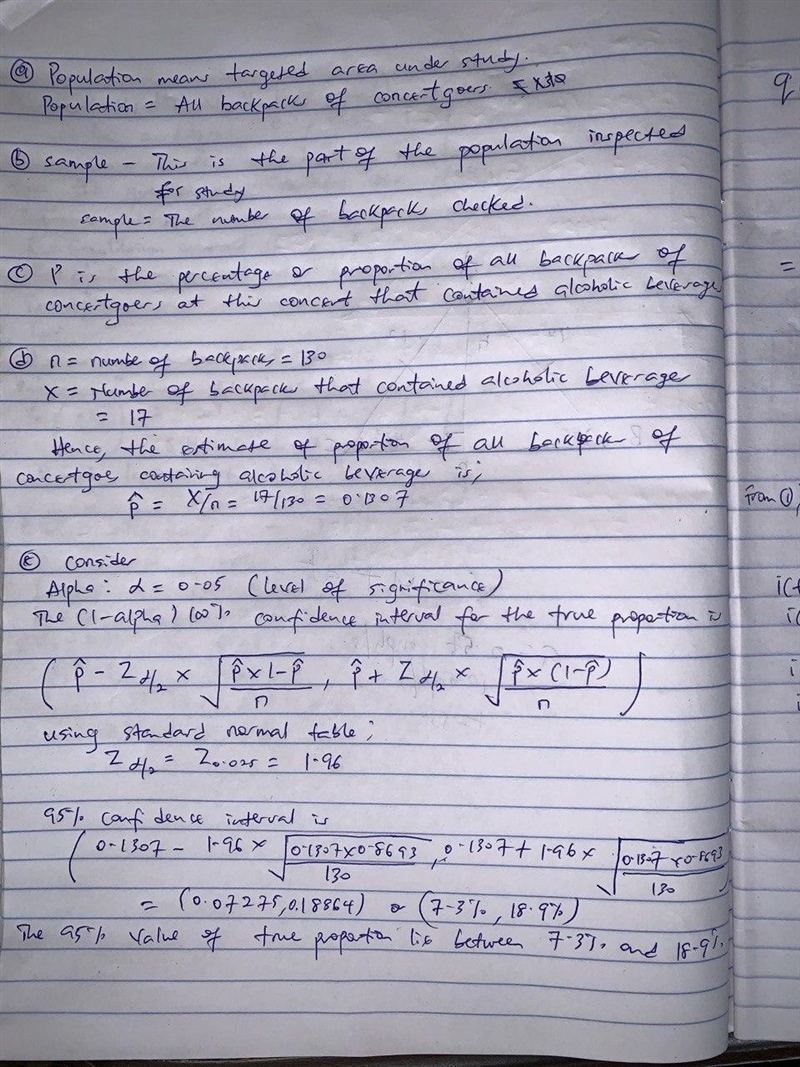 (a) Population means targeted area under study.
Population = All backpacks of concertgoers.
(b) sample - This is the part of the population inspected
for study
sample = The number of backpacks checked.
(c) P is the percentage or proportion of all backpack of
concertgoers at this concert that contained alcoholic beverage
(d) n = number of backpacks = 130
X = Number of backpack that contained alcoholic beverage
= 17
Hence, the estimate of proportion of all backpack of
concertgoes containing alcoholic beverage is;
p̂ = X/n = 17/130 = 0.1307
(e) consider
Alpha: α = 0.05 (level of significance)
The (1-alpha) 100% confidence interval for the true proportion is
( p̂ - Zα/2 × √(p̂ × 1-p̂ / n) , p̂ + Zα/2 × √(p̂ × (1-p̂) / n) )
using standard normal table;
Zα/2 = Z0.025 = 1.96
95% confidence interval is
( 0.1307 - 1.96 × √(0.1307 × 0.8693 / 130) , 0.1307 + 1.96 × √(0.1307 × 0.8693 / 130) )
= (0.07275, 0.18864) or (7.3%, 18.9%)
The 95% value of true proportion lie between 7.3% and 18.9%.
q
=
from (1),
i(
i(
i
i